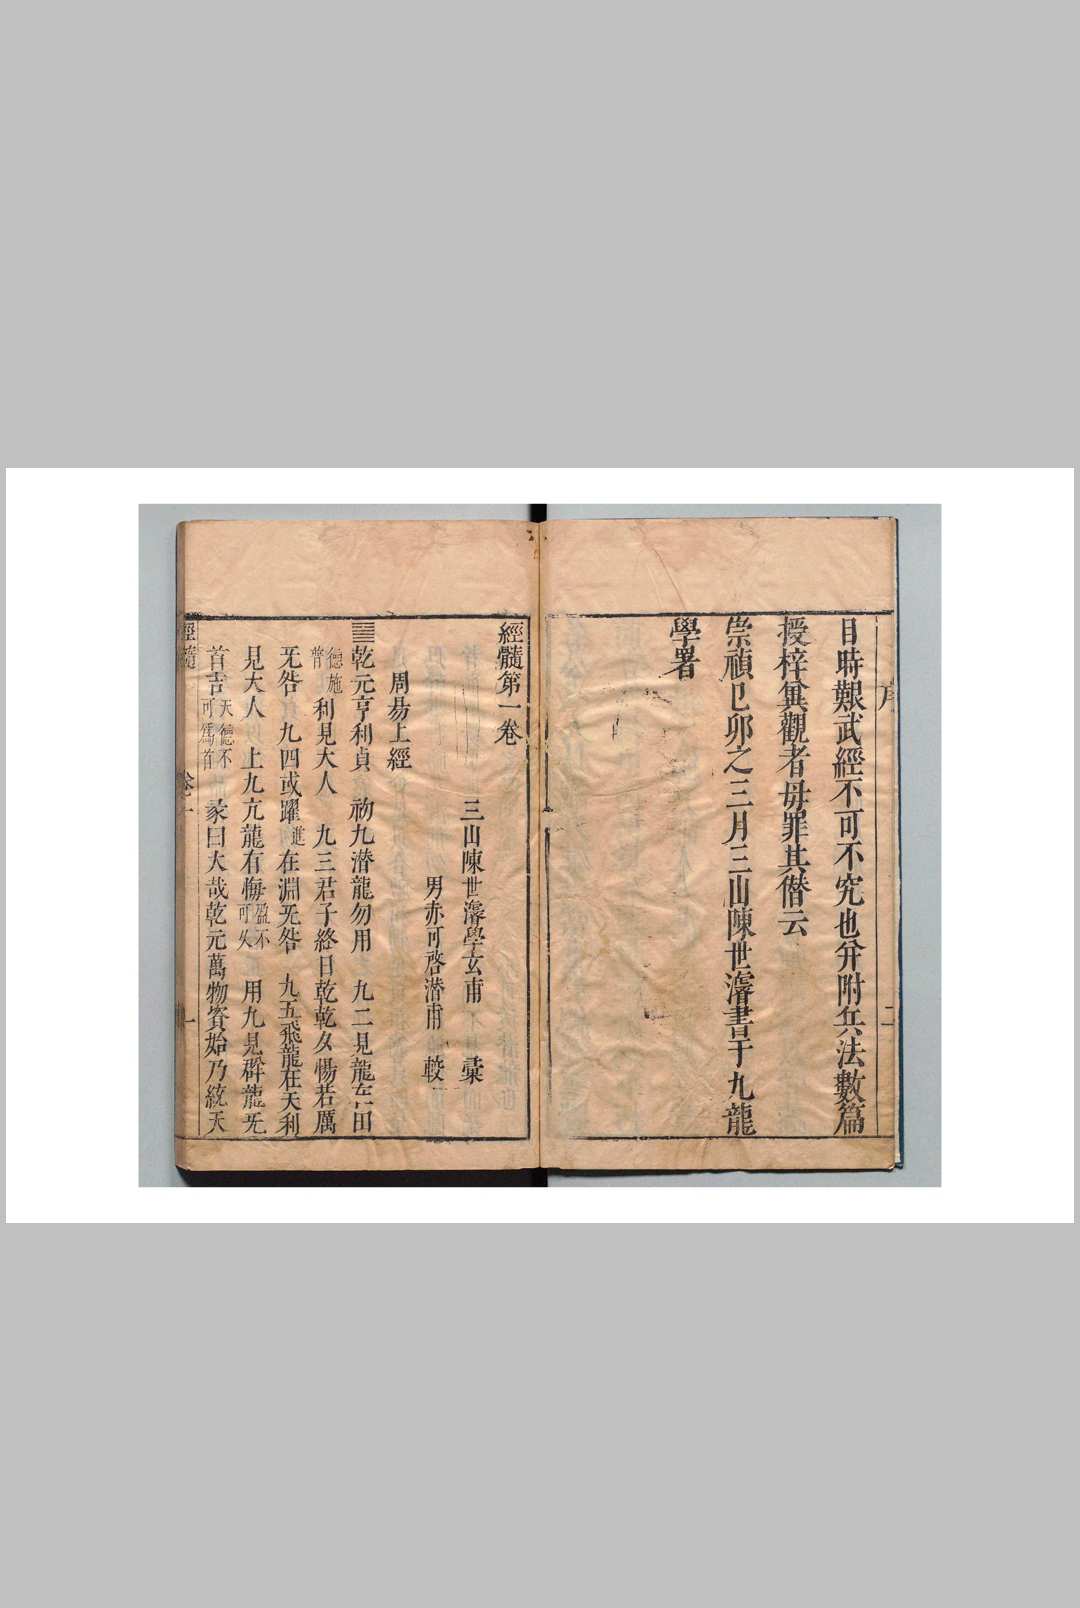 目時艱武經不可不究也并附兵法數篇
授梓冀觀者毋罪其僭云
崇禎己卯之三月三山陳世濬書于九龍
學署
序
二
經髓第一卷
三山陳世濬學玄甫 彙
男亦可啓潜甫 較
周易上經
䷀乾元亨利貞 初九潜龍勿用 九二見龍在田
德施普利見大人 九三君子終日乾乾夕惕若厲
无咎 九四或躍進在淵无咎 九五飛龍在天利
見大人 上九亢龍有悔盈不可久 用九見群龍无
首吉天德不可爲首 彖曰大哉乾元萬物資始乃統天
經髓
卷一
一